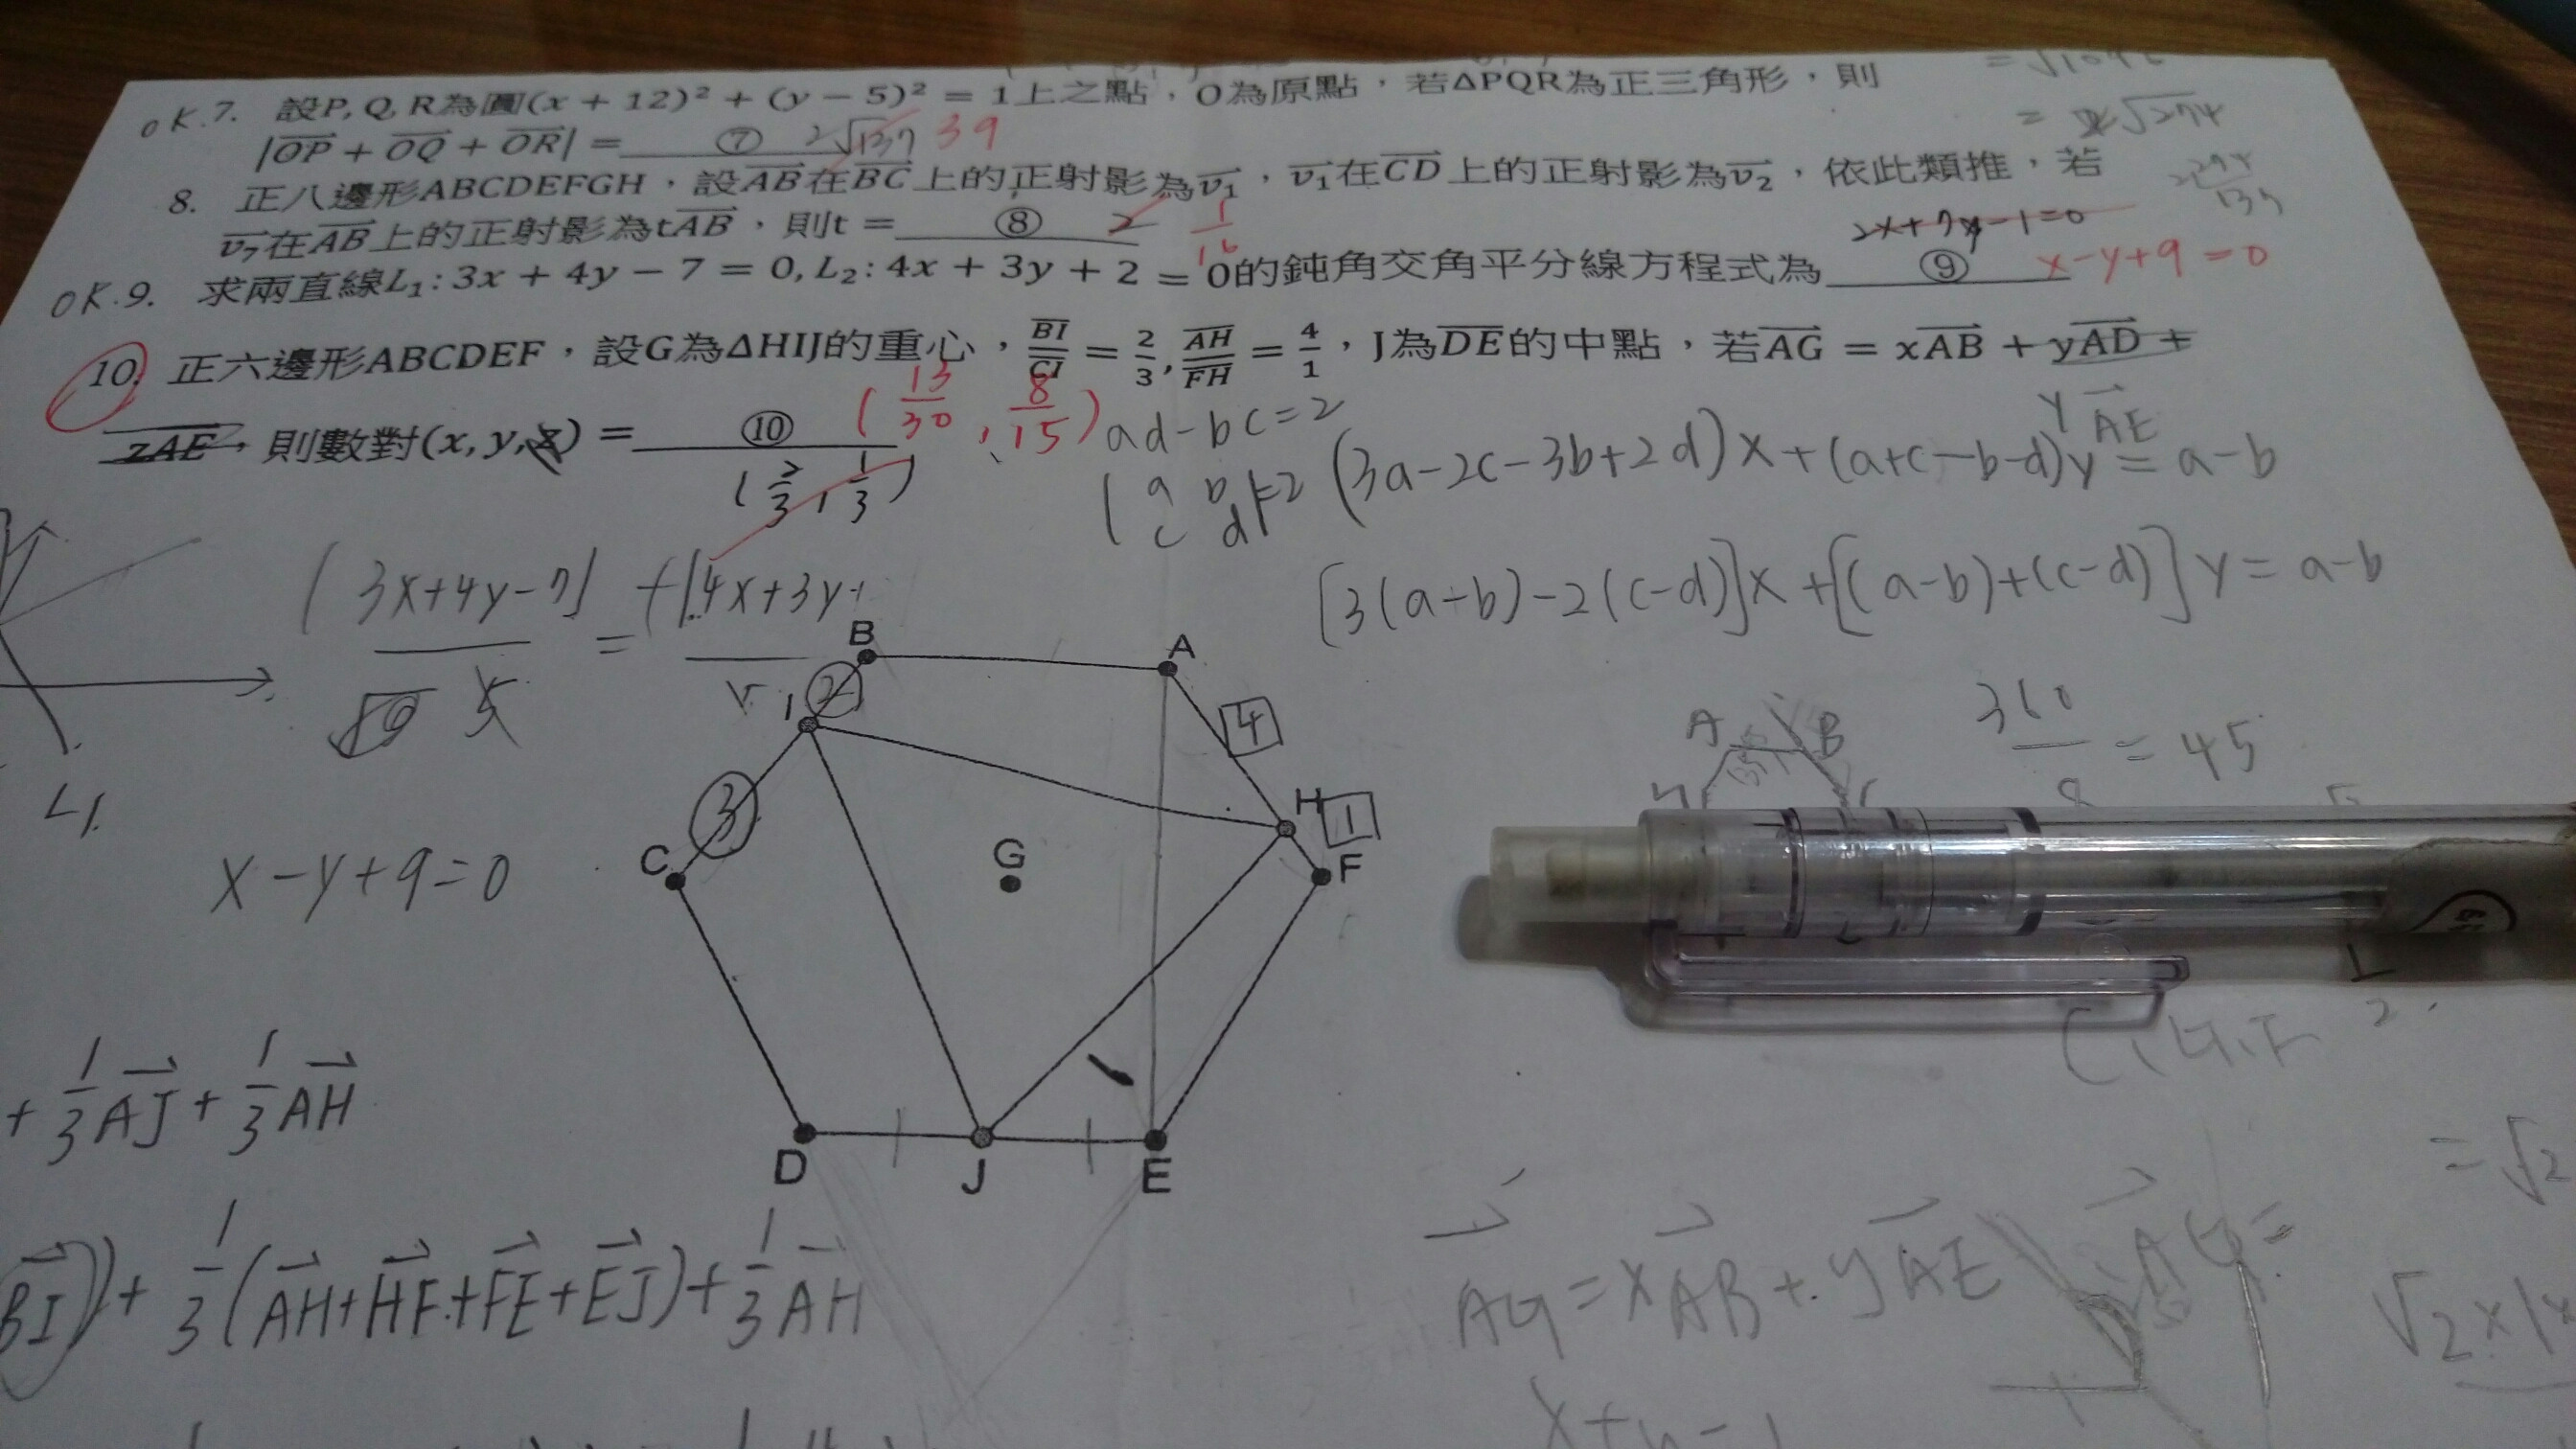 OK.7. 設P, Q, R為圓(x + 12)² + (y − 5)² = 1上之點，O為原點，若ΔPQR為正三角形，則
|OP + OQ + OR| = ⑦ 2√137 39
8. 正八邊形ABCDEFGH，設AB在BC上的正射影為v₁，v₁在CD上的正射影為v₂，依此類推，若
v₇在AB上的正射影為tAB，則t = ⑧ 2 1/16
2x+7y−1=0
OK.9. 求兩直線L₁: 3x + 4y − 7 = 0, L₂: 4x + 3y + 2 = 0的鈍角交角平分線方程式為 ⑨ x−y+9=0
10. 正六邊形ABCDEF，設G為ΔHIJ的重心，BI/CI = 2/3, AH/FH = 4/1，J為DE的中點，若AG = xAB + yAD +
zAE，則數對(x, y, z) = ⑩ (13/30, 8/15)
yAE
(2/3, 1/3)
ad−bc=2
|a b
c d|=2
(3a−2c−3b+2d)x+(a+c−b−d)y=a−b
[3(a−b)−2(c−d)]x+[(a−b)+(c−d)]y=a−b
|3x+4y−7|
=
+|4x+3y+
5
B
A
I
②
4
③
H
1
C
G
F
D
J
E
L1.
x−y+9=0
A B
360/8 = 45
+ 1/3 AJ + 1/3 AH
BI)) + 1/3 (AH+HF+FE+EJ) + 1/3 AH
AG = xAB + yAE
AG =
= √2
√2 x
x+y=1
= √274